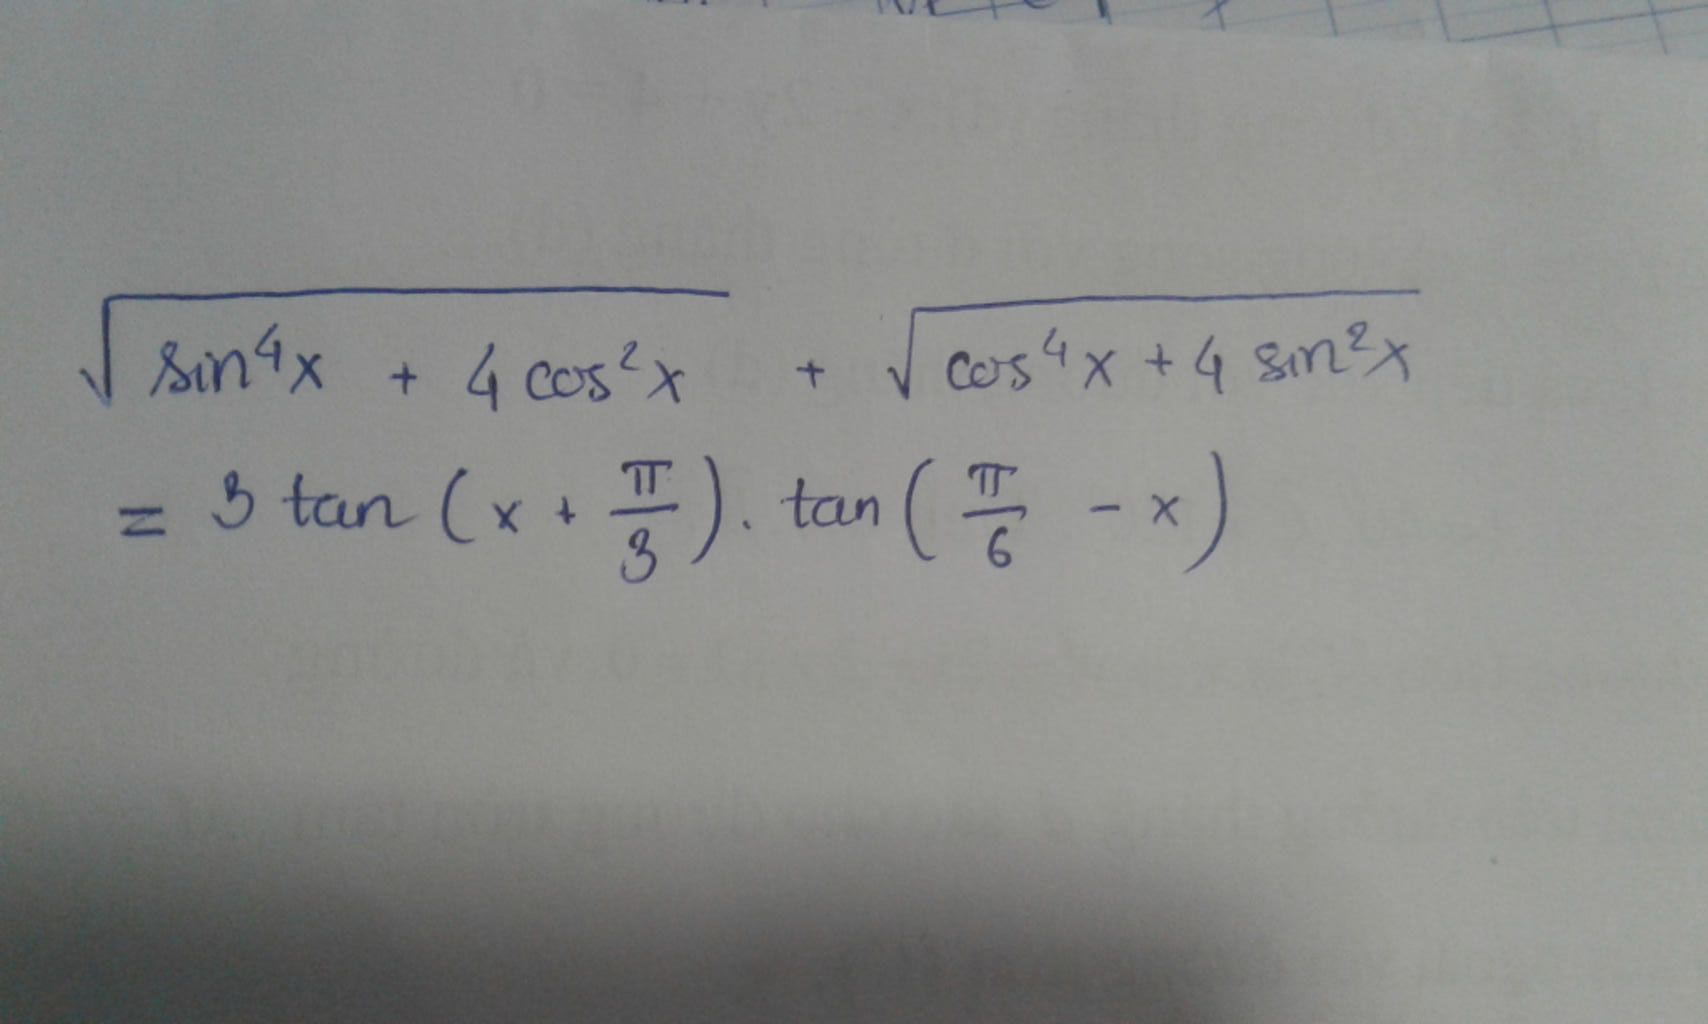 √(sin⁴x + 4 cos²x) + √(cos⁴x + 4 sin²x)
= 3 tan (x + π/3) . tan (π/6 - x)